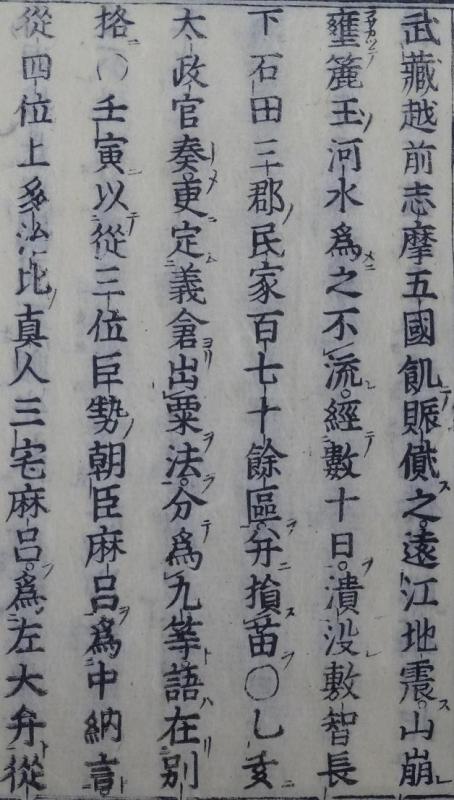 武藏越前志摩五國飢賑貸之。遠江地震。山崩
壅麓玉河水爲之不流。經數十日。潰没敷智長
下石田三郡民家百七十餘區。并損苗○乙亥
太政官奏更定義倉出粟法。分爲九等語在別
挌○壬寅以從三位巨勢朝臣麻呂爲中納言
從四位上多治比真人三宅麻呂。爲左大弁從